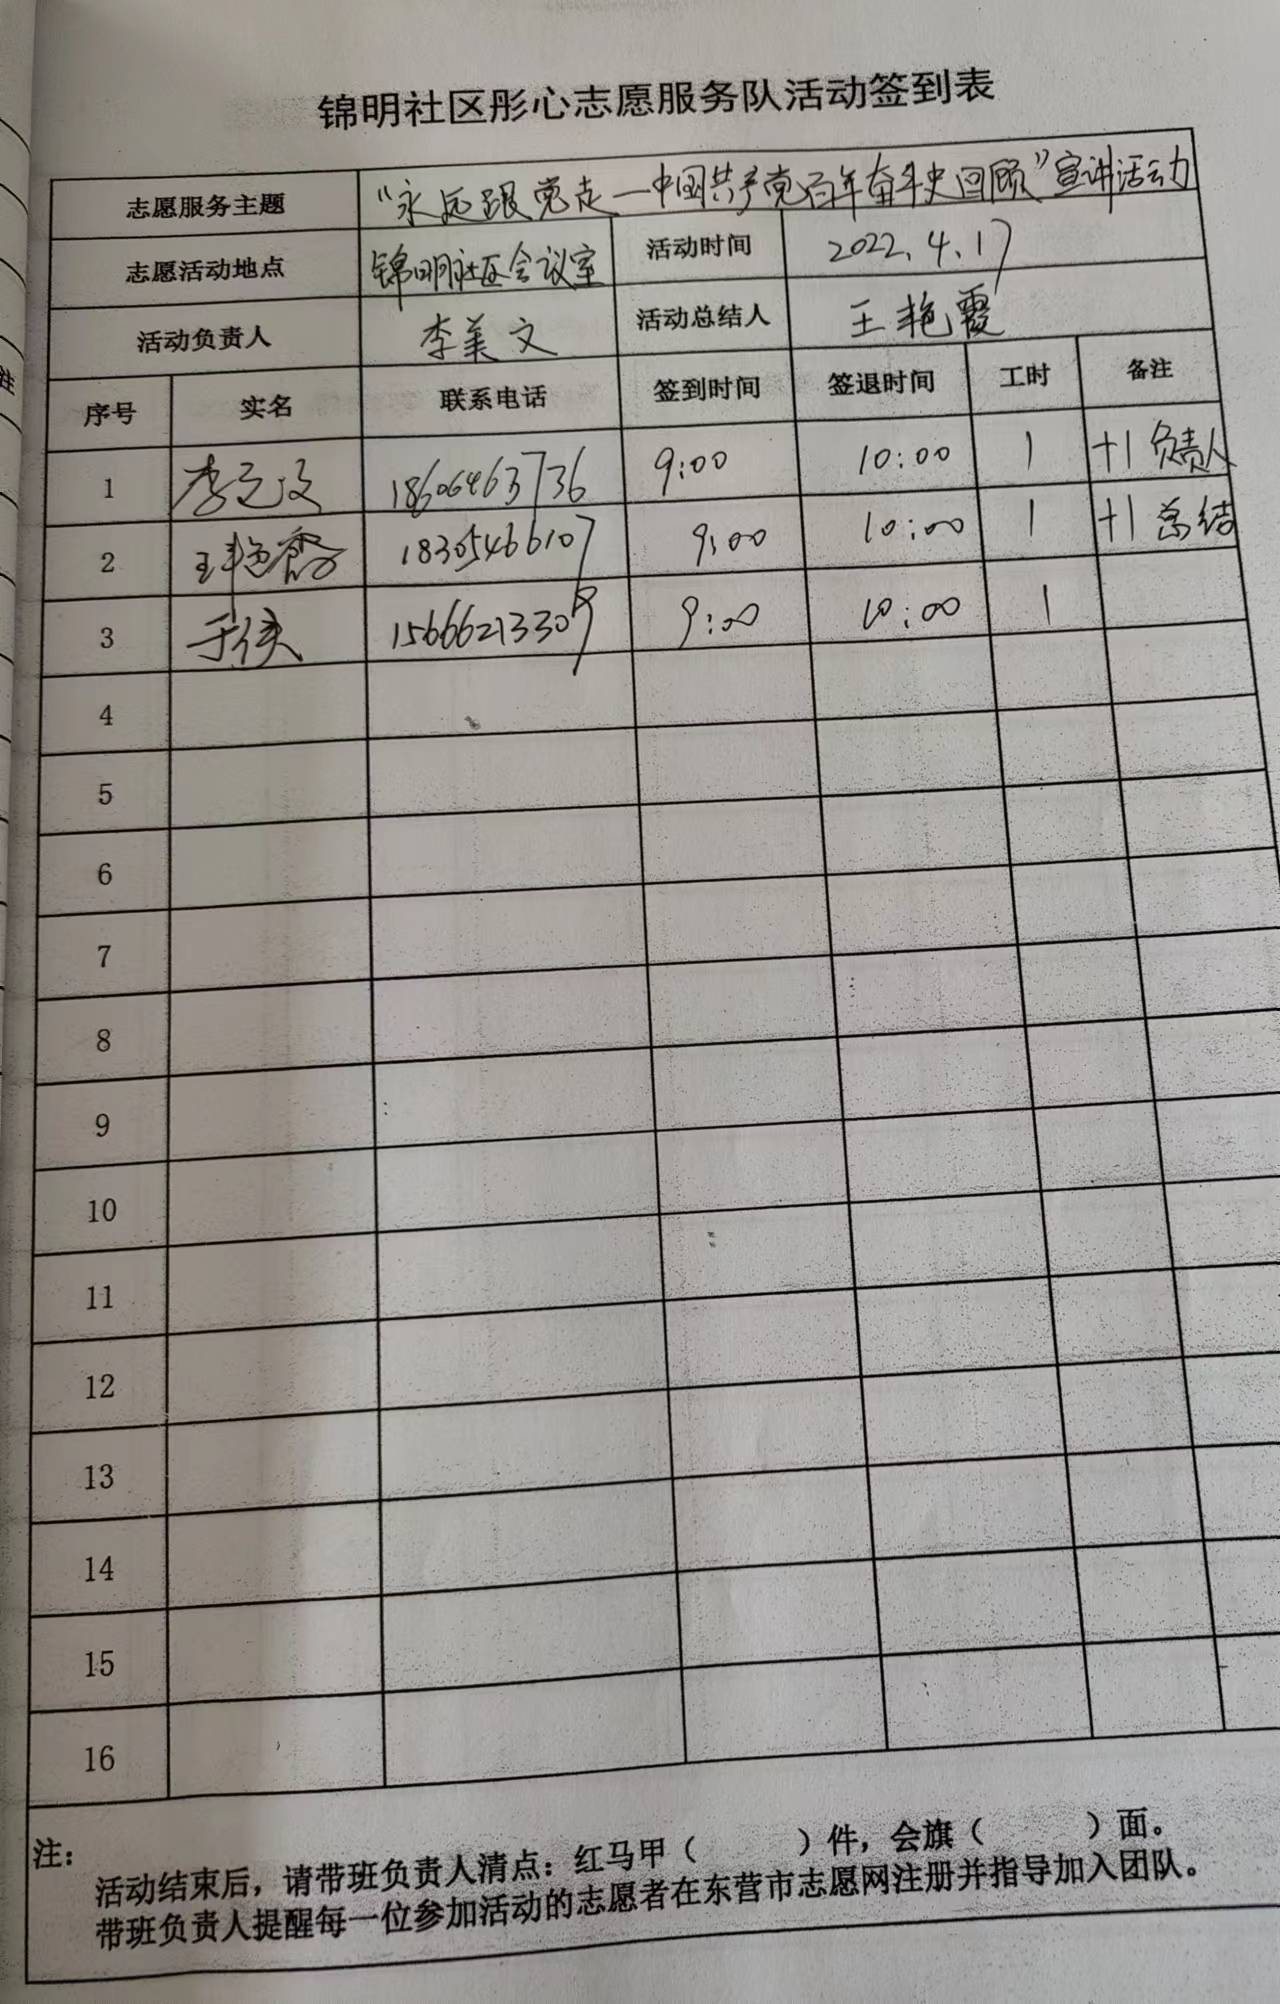 锦明社区彤心志愿服务队活动签到表
志愿服务主题 “永远跟党走—中国共产党百年奋斗史回顾”宣讲活动
志愿活动地点 锦明社区会议室 活动时间 2022.4.17
活动负责人 李美文 活动总结人 王艳霞
序号 实名 联系电话 签到时间 签退时间 工时 备注
1 李美文 18606463736 9:00 10:00 1 +1 负责人
2 王艳霞 18305466107 9:00 10:00 1 +1 总结
3 于侠 15666213309 9:00 10:00 1
4
5
6
7
8
9
10
11
12
13
14
15
16
注：
活动结束后，请带班负责人清点：红马甲（ ）件，会旗（ ）面。
带班负责人提醒每一位参加活动的志愿者在东营市志愿网注册并指导加入团队。
注